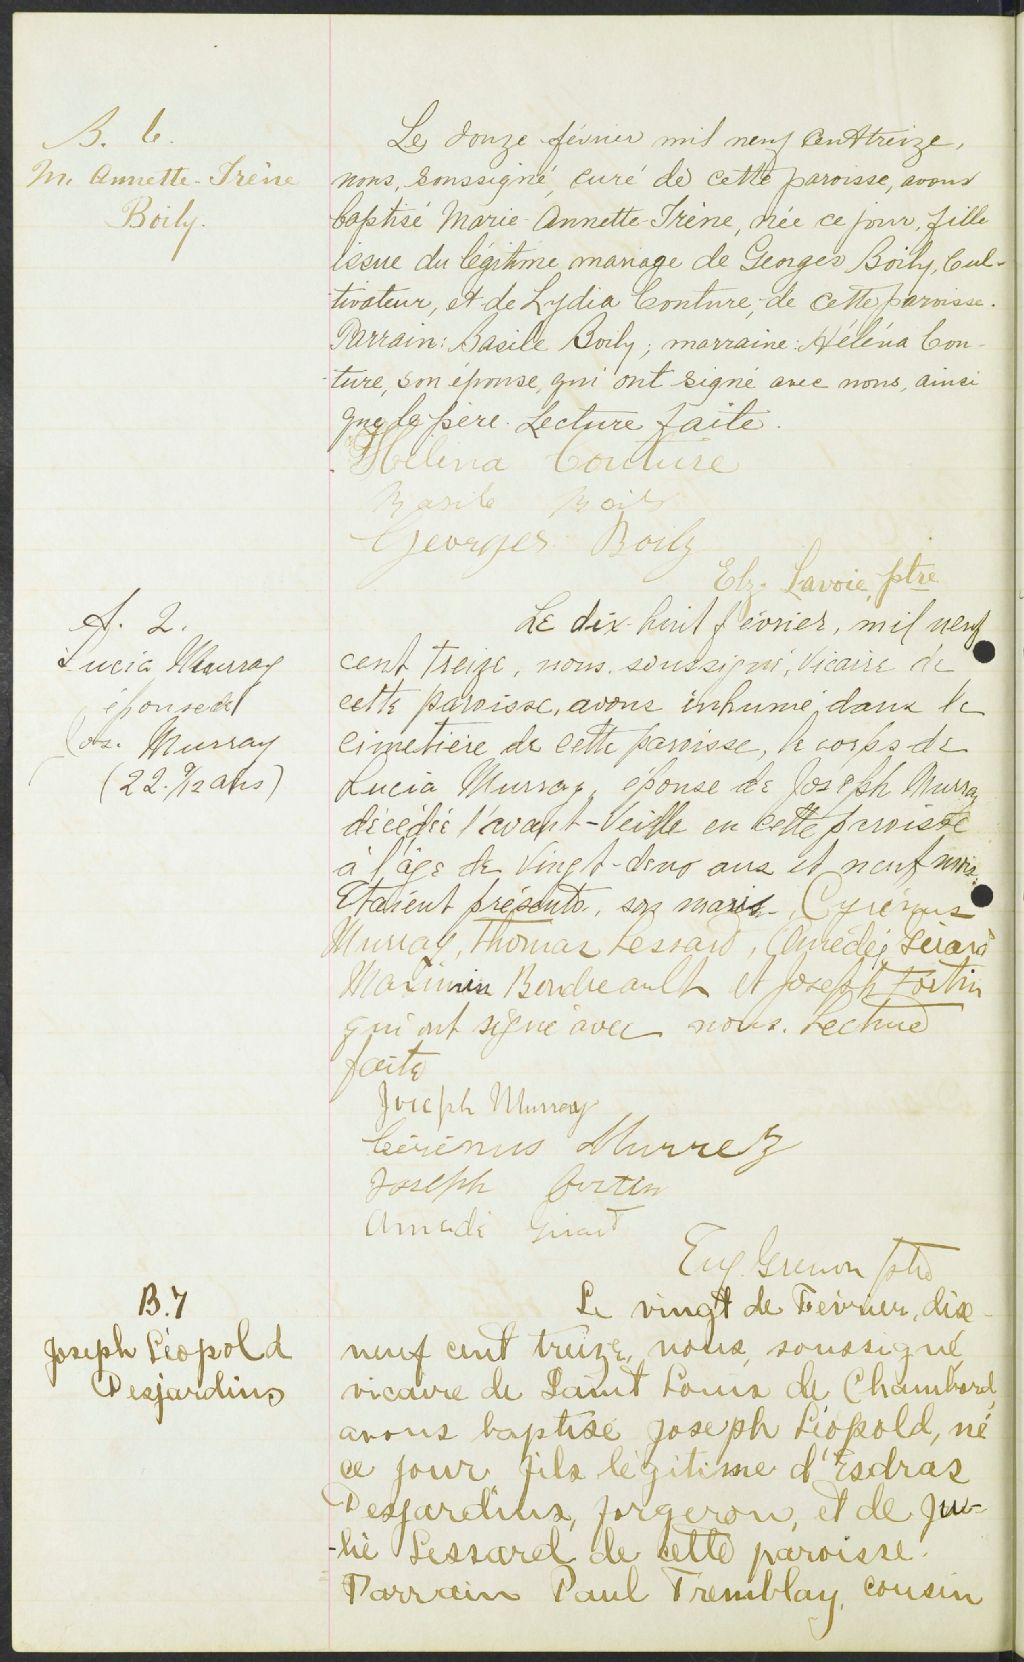 B. 6.
M. Annette-Irène
Boily.
Le douze février mil neuf cent treize,
nous, soussigné, curé de cette paroisse, avons
baptisé Marie-Annette-Irène, née ce jour, fille
issue du légitime mariage de Georges Boily, cul-
tivateur, et de Lydia Couture, de cette paroisse.
Parrain: Basile Boily; marraine: Héléna Cou-
ture, son épouse, qui ont signé avec nous, ainsi
que le père. Lecture faite.
Héléna Couture
Basile Boily
Georges Boily
Elz. Lavoie, ptre
S. 2.
Lucia Murray
épouse de
Jos. Murray
(22. 9/12 ans)
Le dix-huit février, mil neuf
cent treize, nous, soussigné, vicaire de
cette paroisse, avons inhumé, dans le
cimetière de cette paroisse, le corps de
Lucia Murray, épouse de Joseph Murray
décédée l'avant-veille en cette paroisse
à l'âge de vingt-deux ans et neuf mois.
Etaient présents, son mari, Cyrénus
Murray, Thomas Lessard, Amédé Girard
Maximin Boudreault et Joseph Fortin
qui ont signé avec nous. Lecture
faite
Joseph Murray
Cirénus Murrey
Joseph Fortin
Amédé Girard
Eug. Grenon ptre
B. 7
Joseph Léopold
Desjardins
Le vingt de Février, dix-
neuf cent treize, nous, soussigné,
vicaire de Saint Louis de Chambord,
avons baptisé Joseph Léopold, né
ce jour, fils légitime d'Esdras
Desjardins, forgeron, et de Ju-
-lie Lessard de cette paroisse.
Parrain Paul Tremblay, cousin